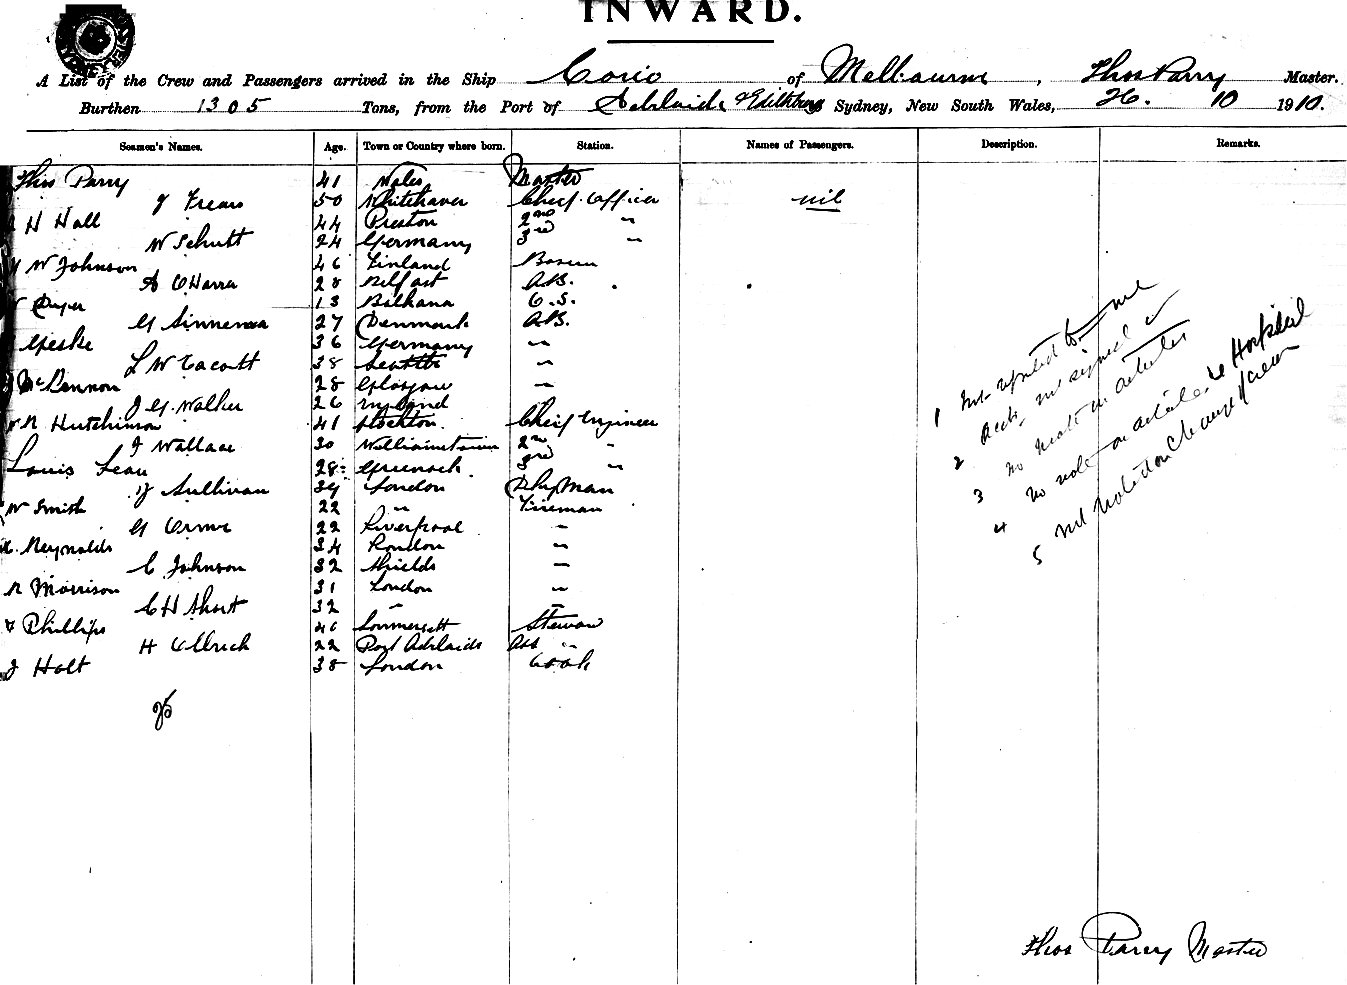 INWARD.
A List of the Crew and Passengers arrived in the Ship Corio of Melbourne, Thos Parry Master.
Burthen 1305 Tons, from the Port of Adelaide & Edithburg Sydney, New South Wales, 26. 10 1910.
Seamen's Names. Age. Town or Country where born. Station. Names of Passengers. Description. Remarks.
Thos Parry 41 Wales Master
J Frears 50 Whitehaven Chief Officer nil
H Hall 44 Preston 2nd "
W Schutt 24 Germany 3rd "
W Johnson 46 Finland Bosun
A OHarra 28 Belfast A.B.
13 O.S.
G Sinnema 27 Denmark A.B.
Geske 36 Germany "
L W Eacott 38 Seattle "
McLennon 28 Glasgow "
J G. Walker 26
R Hutchinson 41 Stockton. Chief Engineer
J Wallace 30 Williamstown 2nd "
Louis Lean 28 Greenock. 3rd "
J Sullivan 39 London Dkyman
W Smith 22 " Fireman
G Orme 22 Liverpool "
Reynolds 34 London "
C Johnson 32 Shields "
R Morrison 31 London "
C H Short 32 " "
Phillips 46 Sommersett Steward
H Ullrich 22 Port Adelaide Ass "
J Holt 38 London Cook
1 not reported to me
2 not signed
3 no articles
4 no note on articles to Hospital
5 not noted on Change of Crew
Thos Parry Master